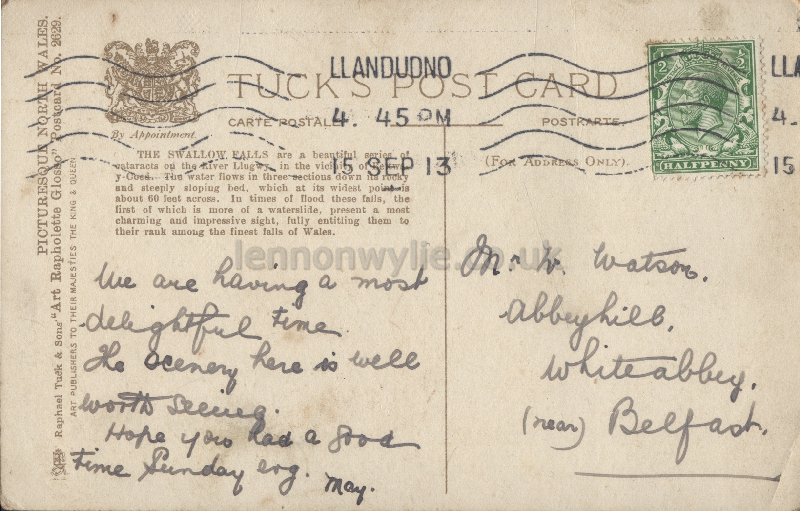 PICTURESQUE NORTH WALES.
Raphael Tuck & Sons' "Art Rapholette Glosso" Postcard No. 2629.
ART PUBLISHERS TO THEIR MAJESTIES THE KING & QUEEN
By Appointment.
TUCK'S POST CARD
CARTE POSTALE
POSTKARTE.
(FOR ADDRESS ONLY).
LLANDUDNO
4. 45 PM
15 SEP 13
LLA
4.
15
1/2 1/2
HALFPENNY
THE SWALLOW FALLS are a beautiful series of
cataracts on the River Llugwy, in the vicinity of Bettws-
y-Coed. The water flows in three sections down its rocky
and steeply sloping bed, which at its widest point is
about 60 feet across. In times of flood these falls, the
first of which is more of a waterslide, present a most
charming and impressive sight, fully entitling them to
their rank among the finest falls of Wales.
lennonwylie.co.uk
We are having a most
delightful time
The scenery here is well
worth seeing.
Hope you had a good
time Sunday evg.
May.
Mr W. Watson.
Abbeyhill.
Whiteabbey.
(near) Belfast.